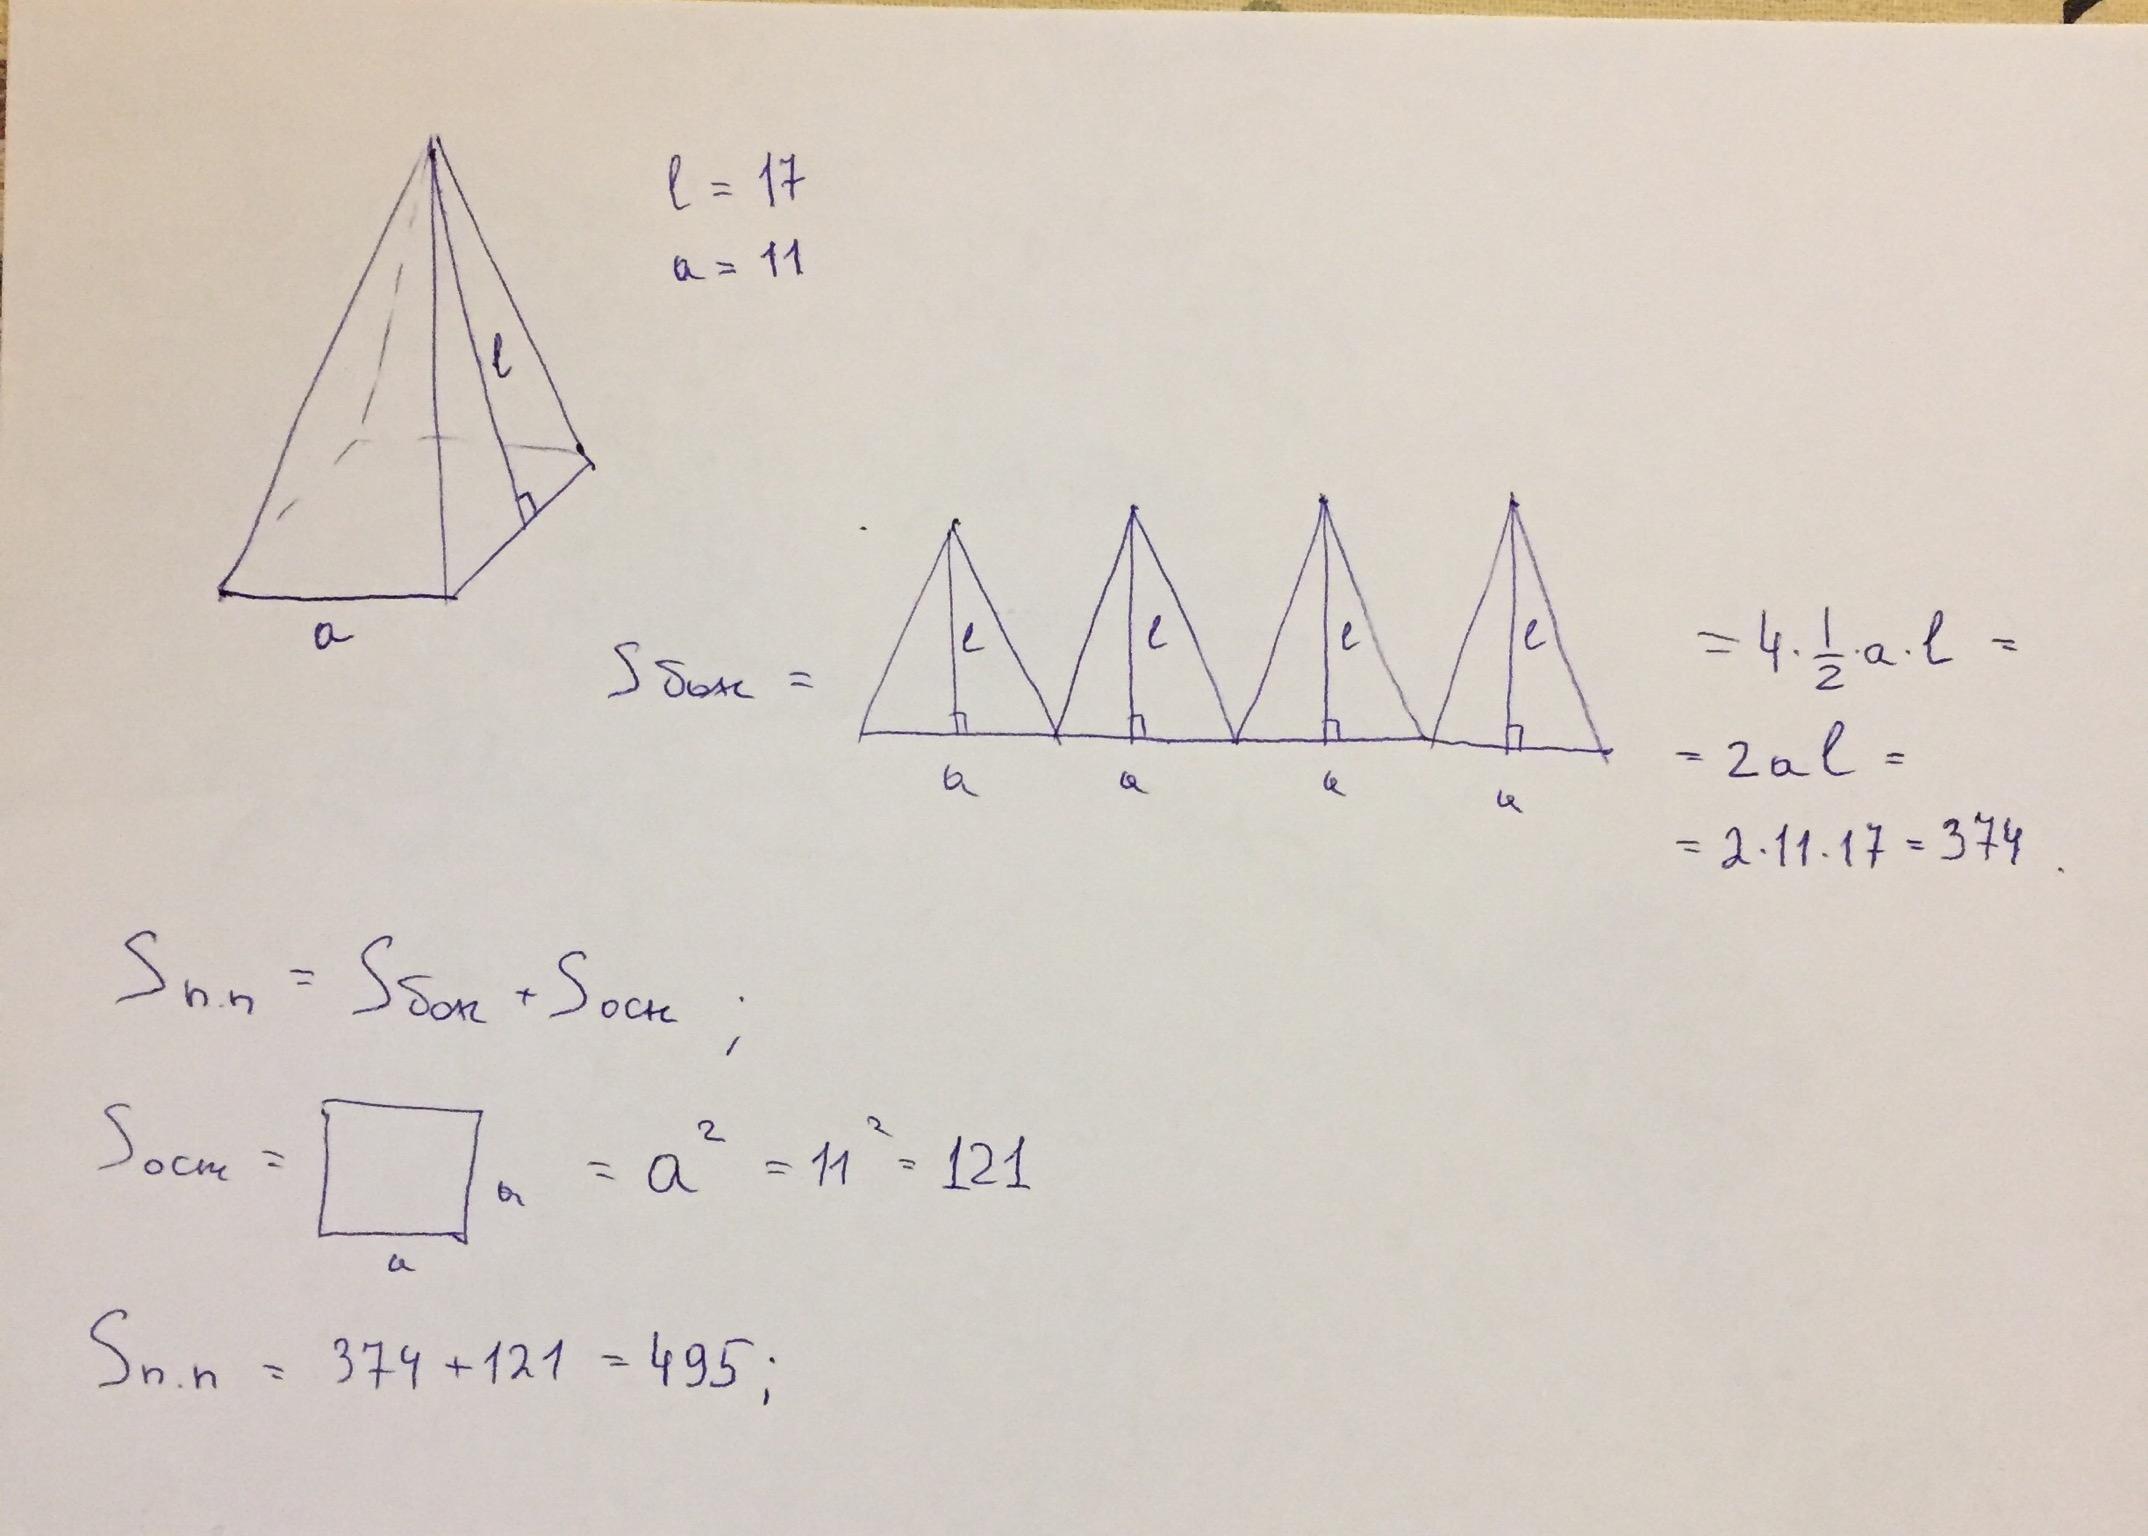 l = 17
a = 11
l
a
Sбок =
l l l l
a a a a
= 4·1/2·a·l =
= 2al =
= 2·11·17 = 374.
Sп.п = Sбок + Sосн ;
Sосн = a a = a² = 11² = 121
Sп.п = 374 + 121 = 495;